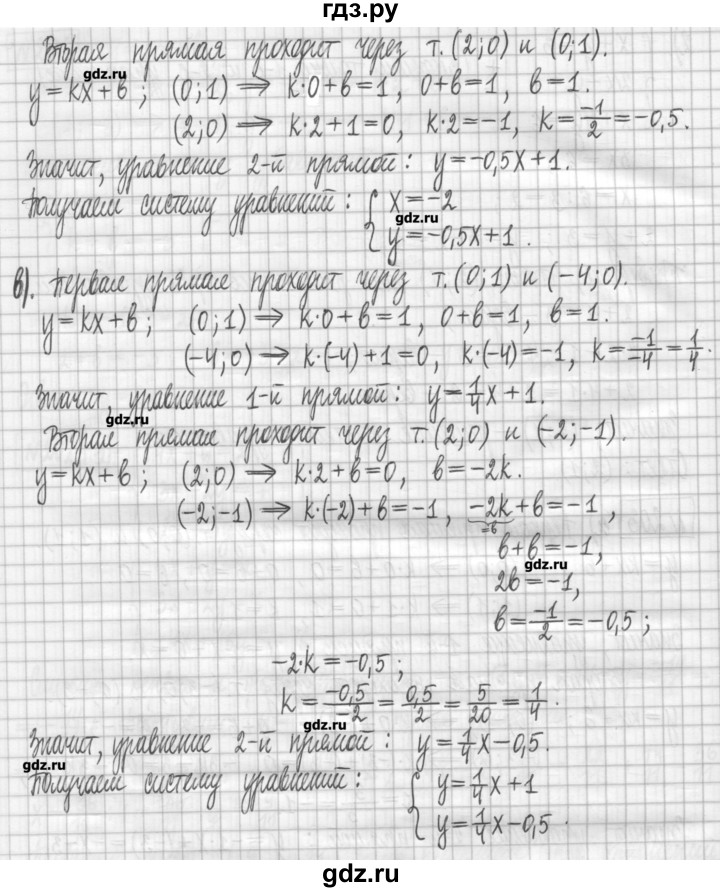 гдз.ру
Вторая прямая проходит через т.(2;0) и (0;1).
gdz.ru
y=kx+b; (0;1) ⇒ k·0+b=1, 0+b=1, b=1.
(2;0) ⇒ k·2+1=0, k·2=-1, k=-1/2=-0,5.
Значит, уравнение 2-й прямой: y=-0,5x+1.
Получаем систему уравнений: { x=-2
gdz.ru
y=-0,5x+1.
в). Первая прямая проходит через т.(0;1) и (-4;0).
y=kx+b; (0;1) ⇒ k·0+b=1, 0+b=1, b=1.
(-4;0) ⇒ k·(-4)+1=0, k·(-4)=-1, k=-1/-4=1/4.
Значит, уравнение 1-й прямой: y=1/4x+1.
gdz.ru
Вторая прямая проходит через т.(2;0) и (-2;-1).
y=kx+b; (2;0) ⇒ k·2+b=0, b=-2k.
(-2;-1) ⇒ k·(-2)+b=-1, -2k+b=-1,
=b
b+b=-1,
gdz.ru
2b=-1,
b=-1/2=-0,5;
-2·k=-0,5;
k=-0,5/-2=0,5/2=5/20=1/4.
gdz.ru
Значит, уравнение 2-й прямой: y=1/4x-0,5.
gdz.ru
Получаем систему уравнений: { y=1/4x+1
y=1/4x-0,5.
gdz.ru